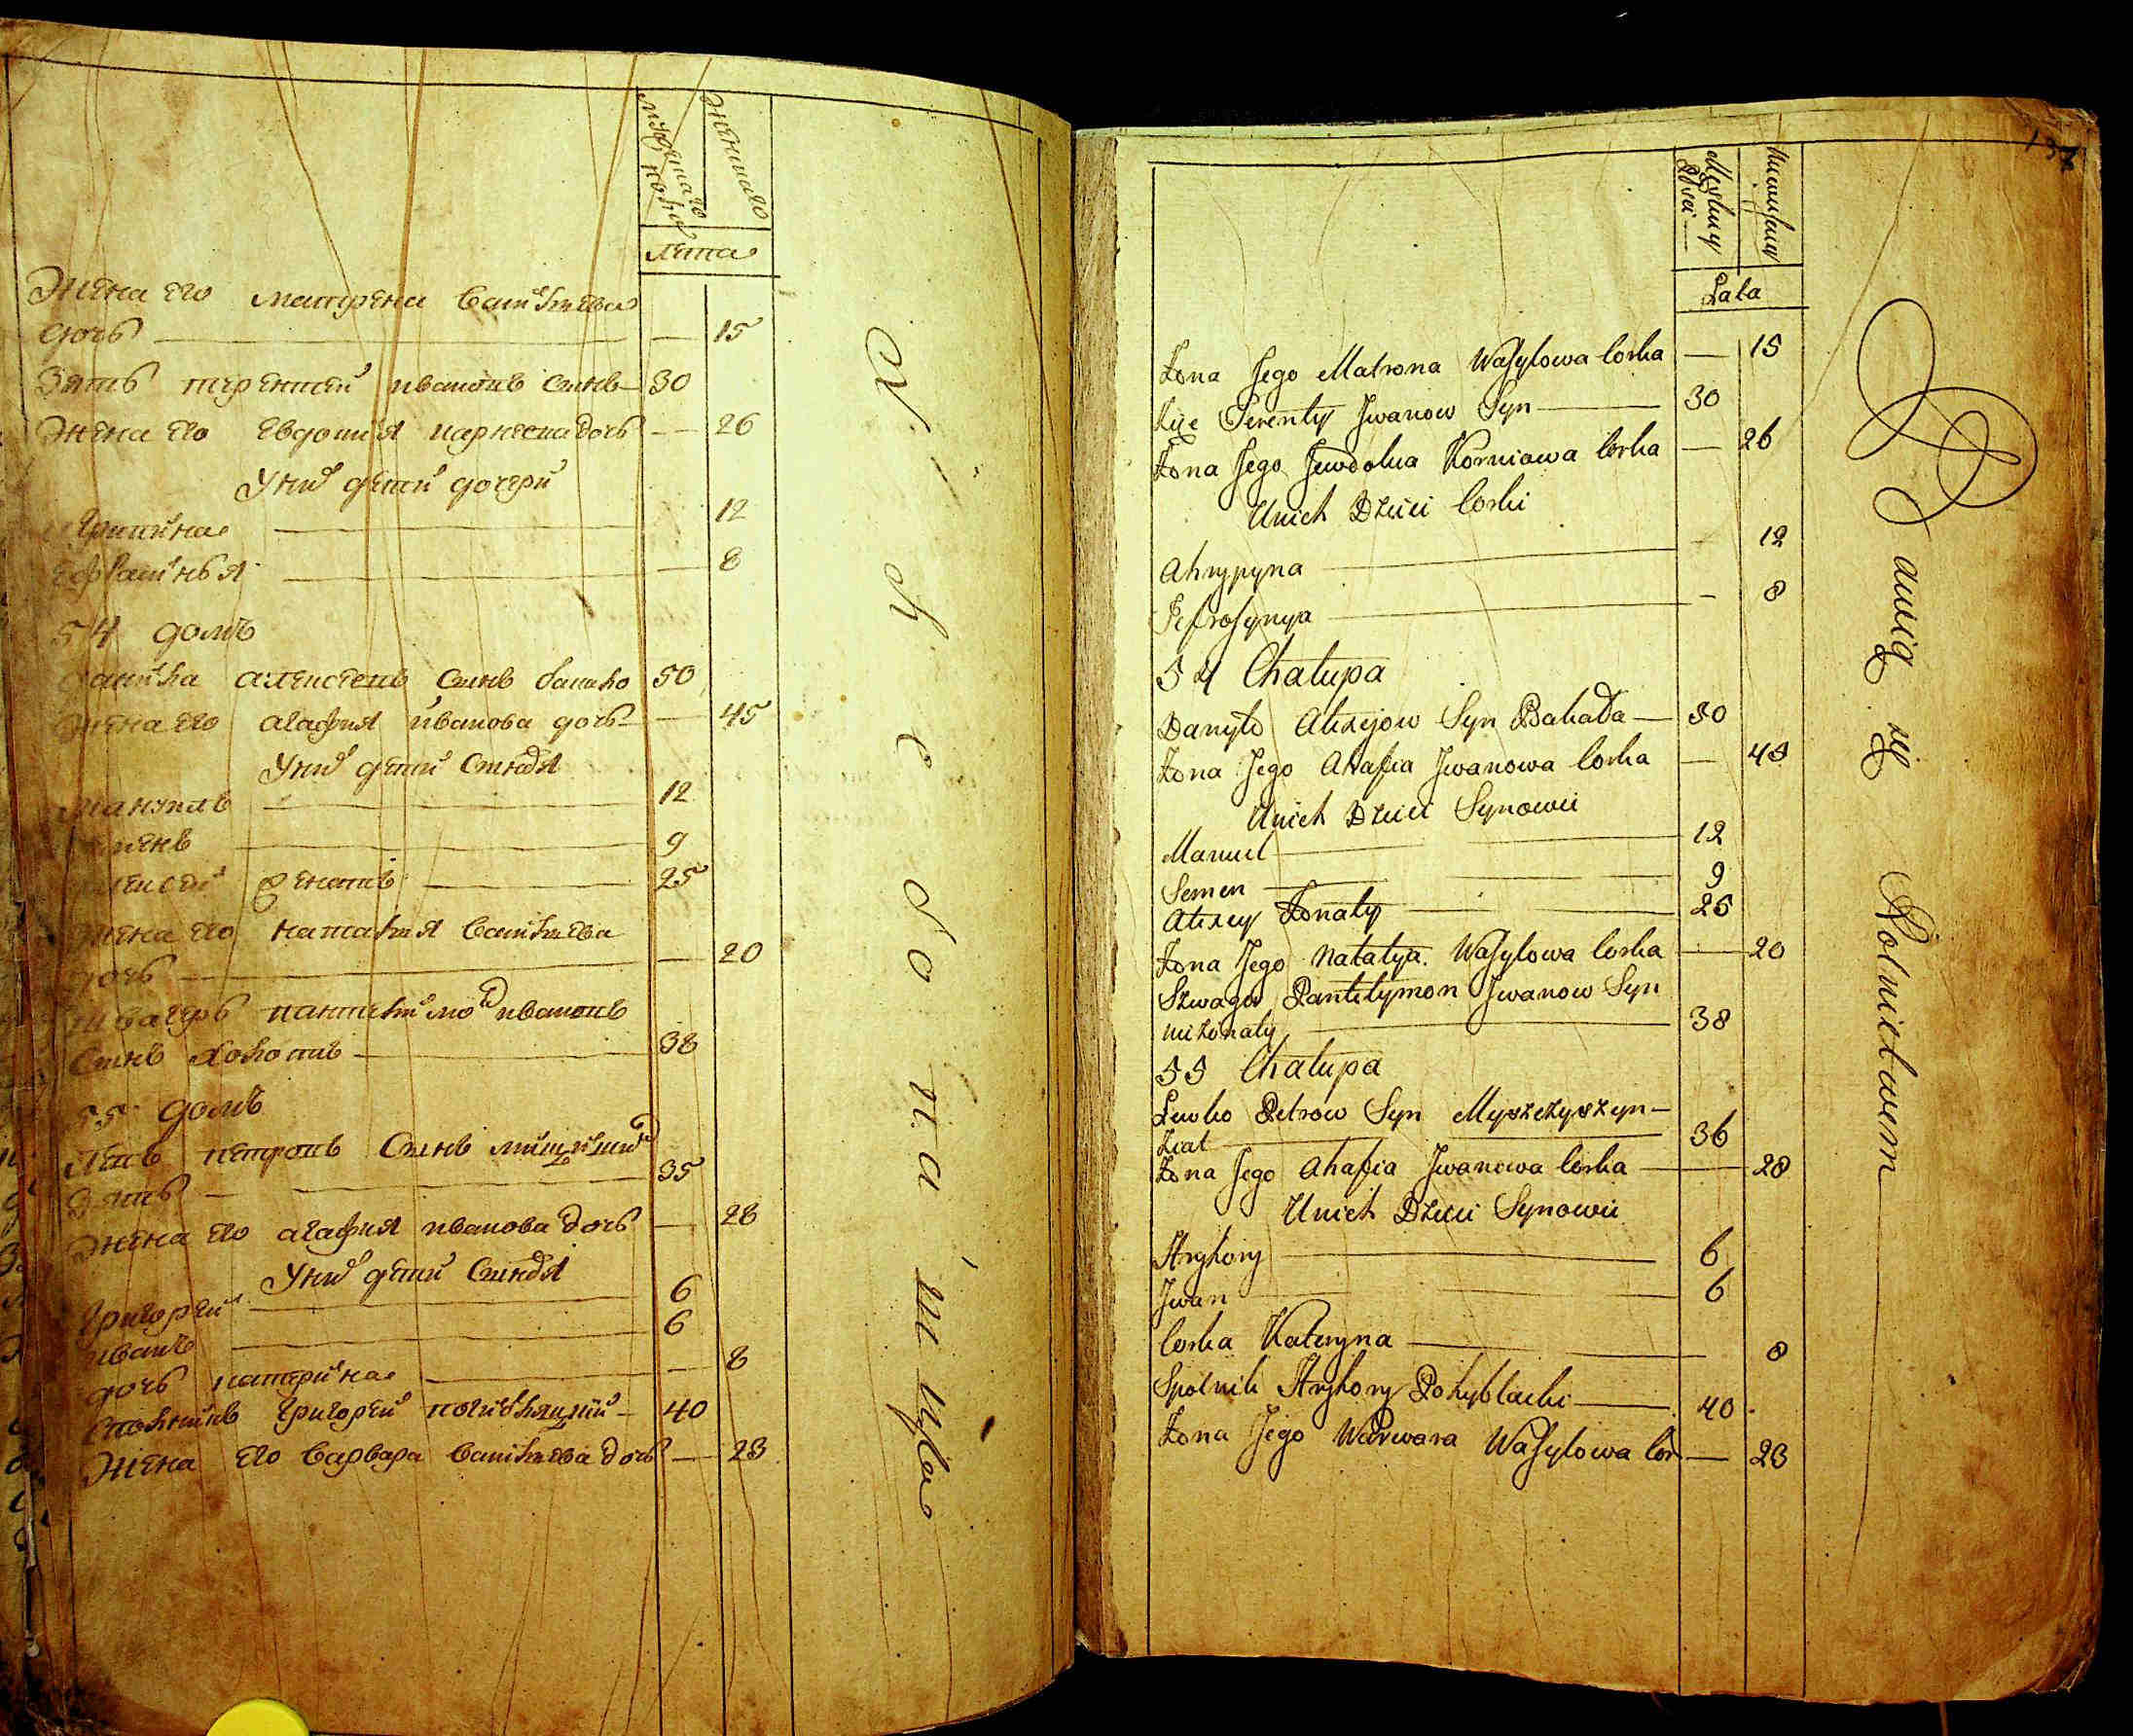 мужеска пола
женска
Лѣта
Жена его матрена василева
дочь 15
Зять терентей ивановъ сынъ 30
Жена его евдокия карнеева дочь 26
У них дѣти дочери
12
ефросинья 8
54 домъ
данила алексеевъ сынъ 50
жена его агафия иванова дочь 45
У них дѣти сыновя
мануилъ 12
семенъ 9
алексей женатъ 25
жена его наталия василева
дочь 20
швагеръ пантелимон ивановъ
сынъ холостъ 38
55 домъ
левъ петровъ сынъ
зять 35
жена его агафия иванова дочь 28
У них дѣти сыновя
григорей 6
иванъ 6
дочь катерина 8
григорей 40
Жена его варвара василева дочь 23
Męskiey Płci
Lata
Żona Jego Matrona Wasylowa Corka 15
Terenty Jwanow Syn 30
Żona Jego Jewdokia Korniowa Corka 26
Unich Dzieci Corki
Ahrypyna 12
Jefrosynya 8
54 Chalupa
Danyło Alexejow Syn 50
Żona Jego Ahafia Jwanowa Corka 45
Unich Dzieci Synowie
Manuel 12
Semen 9
Alexey Żonaty 25
Żona Jego Natalya Wasylowa Corka 20
Szwagier Pantelymon Jwanow Syn
nieżonaty 38
55 Chalupa
Lewko Petrow Syn Myszczyszyn
Ziat 36
Żona Jego Ahafia Jwanowa Corka 28
Unich Dzieci Synowie
Hryhory 6
Jwan 6
Corka Kateryna 8
Spolnik Hryhory Pohyblacki 40
Żona Jego Warwara Wasylowa Cor 23
się Rolnictwem